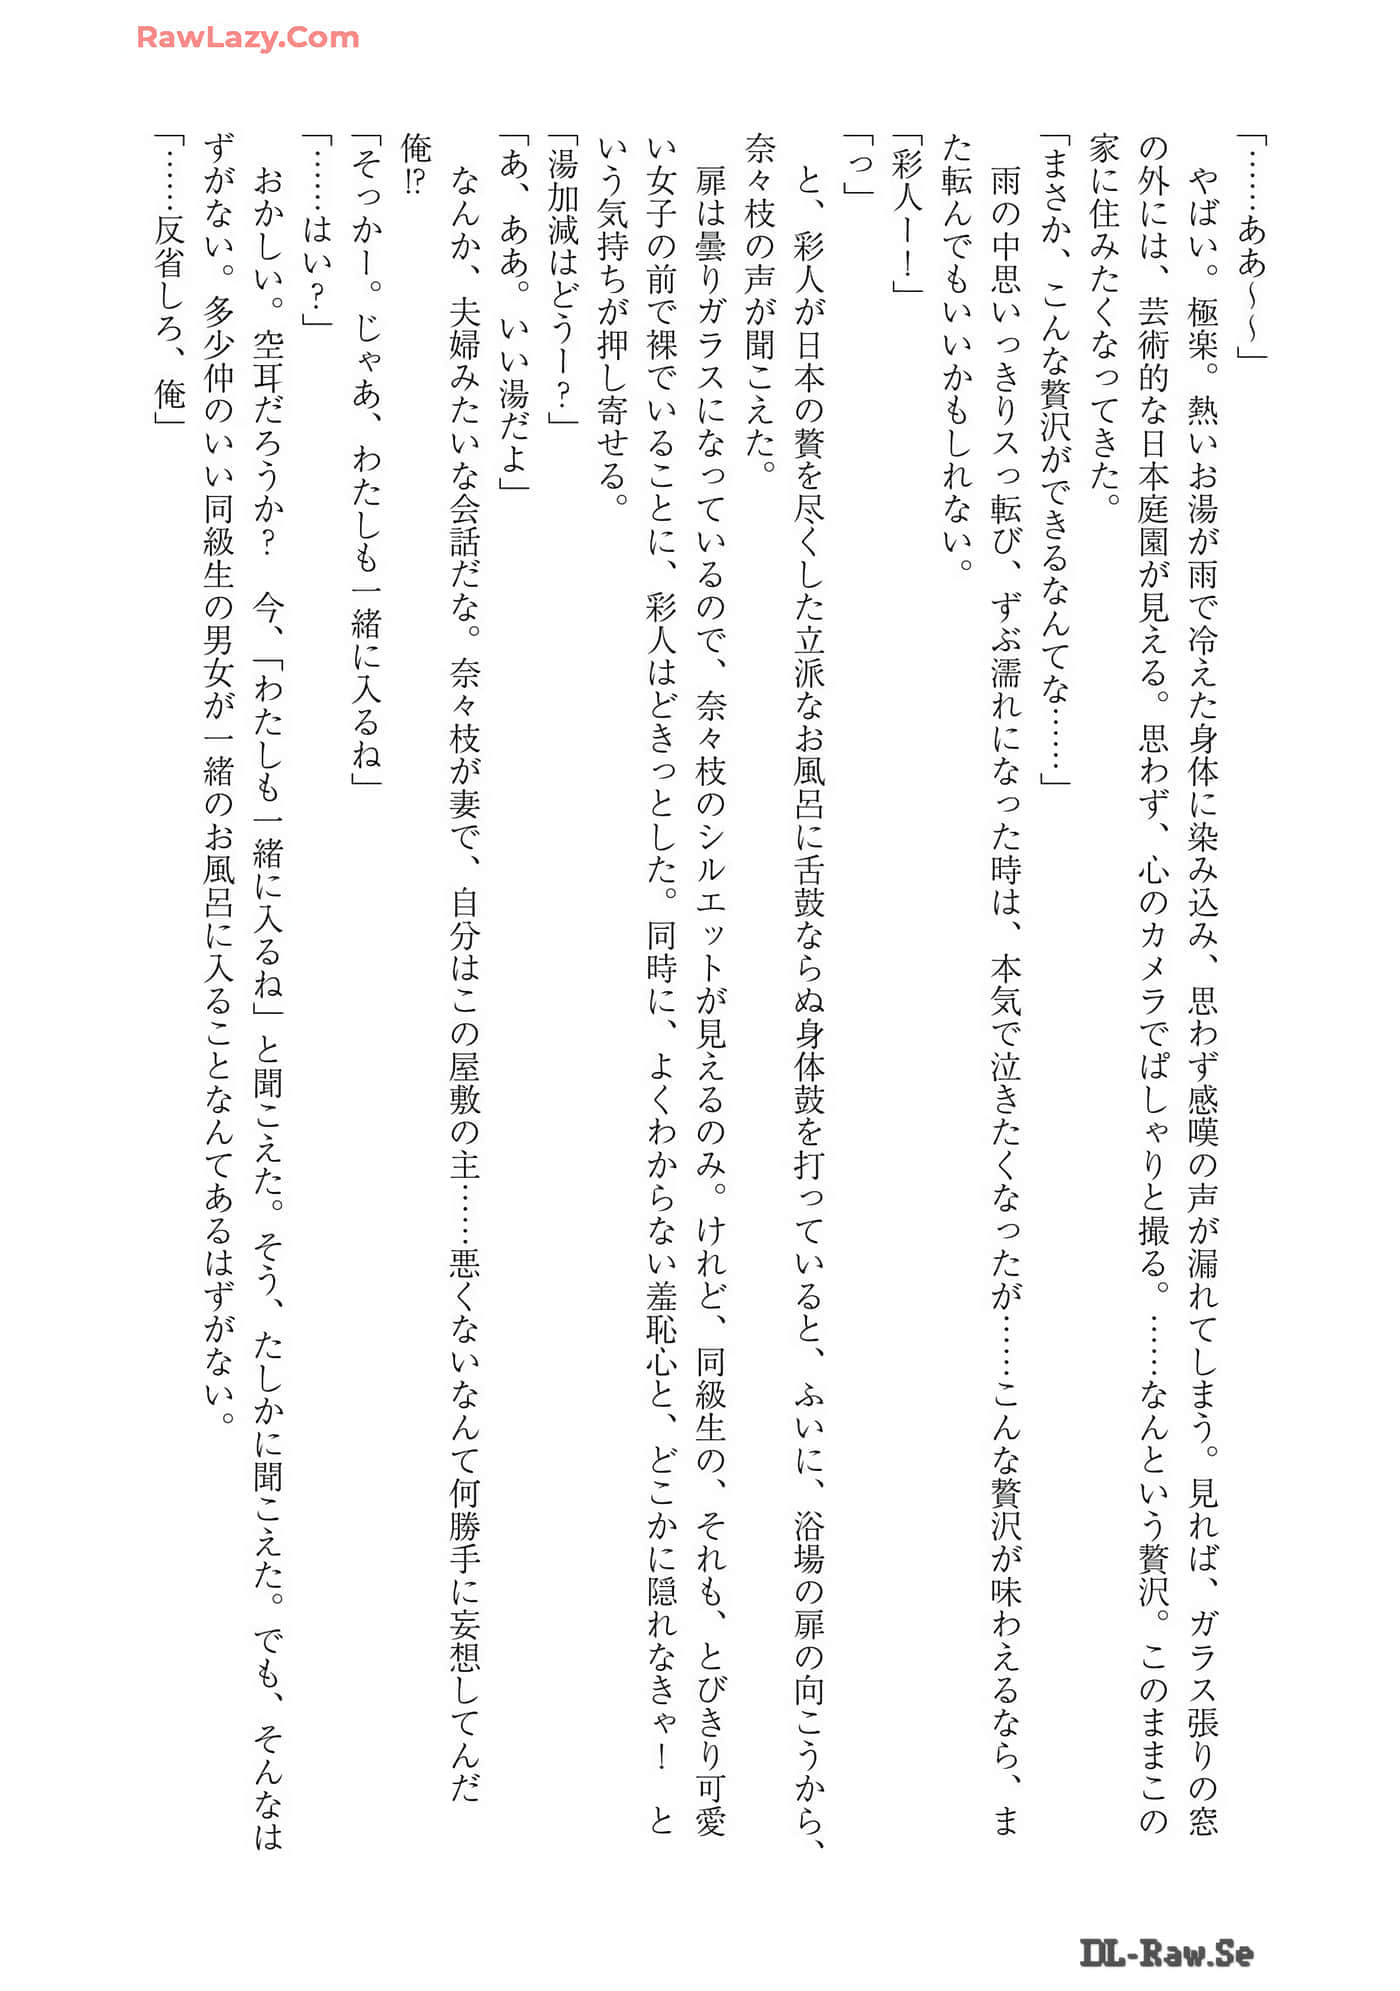 RawLazy.Com
「……ああ～～」
　やばい。極楽。熱いお湯が雨で冷えた身体に染み込み、思わず感嘆の声が漏れてしまう。見れば、ガラス張りの窓
の外には、芸術的な日本庭園が見える。思わず、心のカメラでぱしゃりと撮る。……なんという贅沢。このままこの
家に住みたくなってきた。
「まさか、こんな贅沢ができるなんてな……」
　雨の中思いっきりスっ転び、ずぶ濡れになった時は、本気で泣きたくなったが……こんな贅沢が味わえるなら、ま
た転んでもいいかもしれない。
「彩人ー！」
「っ」
　と、彩人が日本の贅を尽くした立派なお風呂に舌鼓ならぬ身体鼓を打っていると、ふいに、浴場の扉の向こうから、
奈々枝の声が聞こえた。
　扉は曇りガラスになっているので、奈々枝のシルエットが見えるのみ。けれど、同級生の、それも、とびきり可愛
い女子の前で裸でいることに、彩人はどきっとした。同時に、よくわからない羞恥心と、どこかに隠れなきゃ！　と
いう気持ちが押し寄せる。
「湯加減はどうー？」
「あ、ああ。いい湯だよ」
　なんか、夫婦みたいな会話だな。奈々枝が妻で、自分はこの屋敷の主……悪くないなんて何勝手に妄想してんだ
俺⁉
「そっかー。じゃあ、わたしも一緒に入るね」
「……はい？」
　おかしい。空耳だろうか？　今、「わたしも一緒に入るね」と聞こえた。そう、たしかに聞こえた。でも、そんなは
ずがない。多少仲のいい同級生の男女が一緒のお風呂に入ることなんてあるはずがない。
「……反省しろ、俺」
DL-Raw.Se